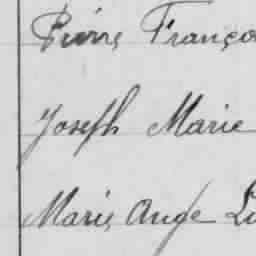 Pierre Franço
Joseph Marie
Marie Ange Lu